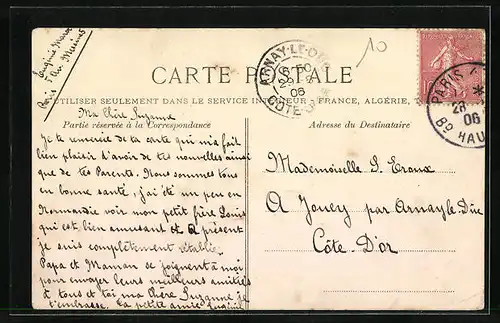 Eugénie
Paris
10
ARNAY-LE-DUC
06
CÔTE-D'OR
CARTE POSTALE
PARIS
28
06
Bd HAU
À UTILISER SEULEMENT DANS LE SERVICE INTÉRIEUR - FRANCE, ALGÉRIE,
Ma Chère Suzanne
Partie réservée à la Correspondance
Adresse du Destinataire
Je te remercie de ta carte qui m'a fait
bien plaisir d'avoir de tes nouvelles ainsi
que de tes Parents. Nous sommes tous
en bonne santé, j'ai été un peu en
Normandie voir mon petit frère Louis
qui est bien amusant et à présent
je suis complètement rétablie.
Papa et Maman se joignent à moi
pour envoyer leurs meilleures amitiés
à tous et toi ma Chère Suzanne je
t'embrasse. Ta petite amie
Mademoiselle S.
A Jouey par Arnay le Duc
Côte D'or